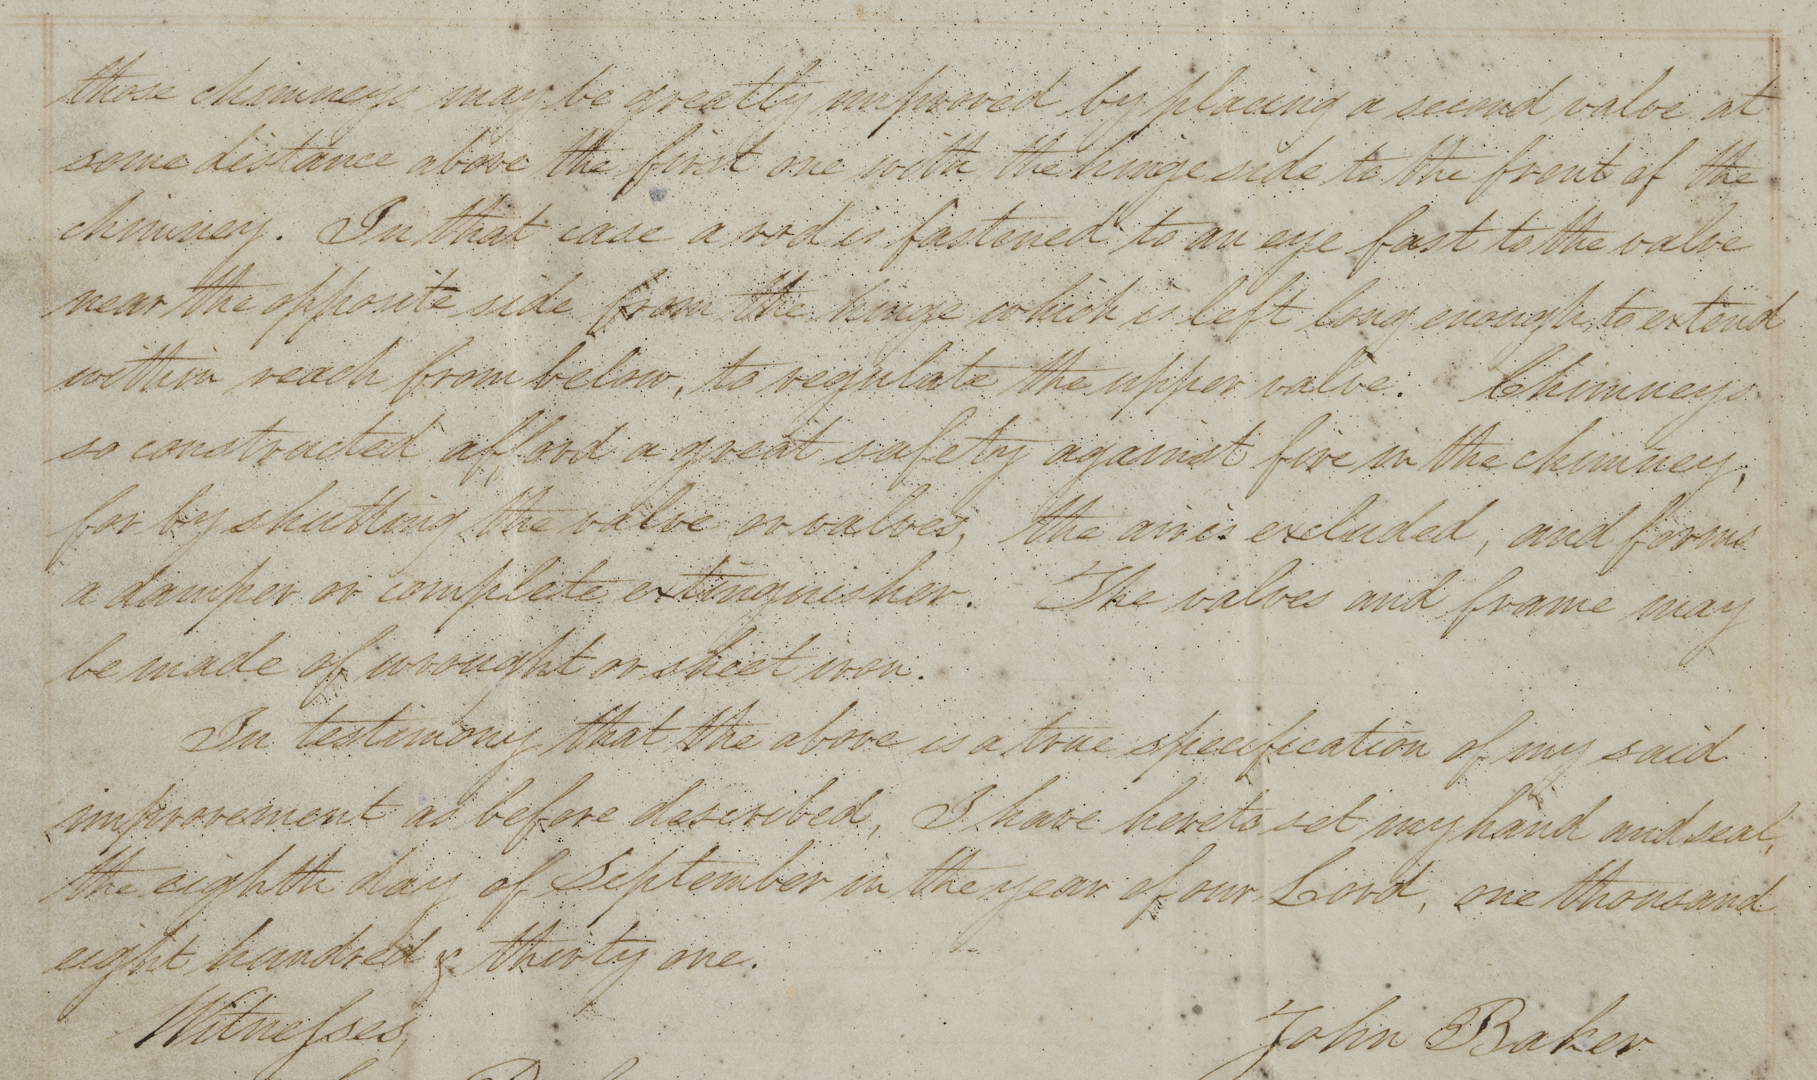 those chimneys may be greatly improved by placing a second valve at
some distance above the first one with the hinge side to the front of the
chimney. In that case a rod is fastened to an eye fast to the valve
near the opposite side from the hinge which is left long enough to extend
within reach from below, to regulate the upper valve. Chimneys
so constructed afford a great safety against fire in the chimney,
for by shutting the valve or valves, the air is excluded, and forms
a damper or complete extinguisher. The valves and frame may
be made of wrought or sheet iron.
In testimony that the above is a true specification of my said
improvement as before described, I have hereto set my hand and seal,
the eighth day of September in the year of our Lord, one thousand
eight hundred & thirty one.
Witnesses,
John Baker